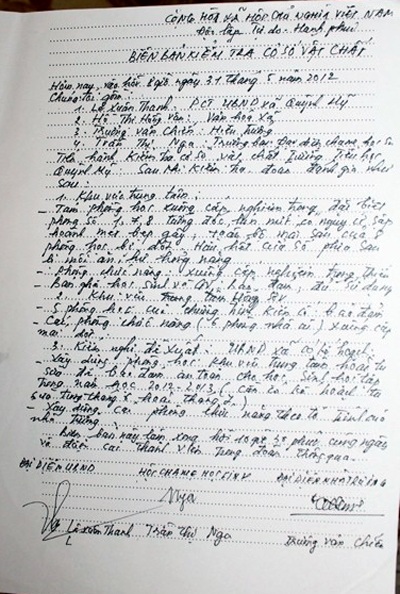 CỘNG HÒA XÃ HỘI CHỦ NGHĨA VIỆT NAM
Độc lập Tự do Hạnh phúc
BIÊN BẢN KIỂM TRA CƠ SỞ VẬT CHẤT
Hôm nay, vào hồi 8 giờ, ngày 31 tháng 5 năm 2012
Chúng tôi gồm
1. Lê Xuân Thanh: PCT UBND xã Quỳnh Mỹ
2. Hồ Thị Hồng Vân: Văn hóa xã
3. Trương Văn Chiến: Hiệu trưởng
4. Trần Thị Nga: Trưởng ban Đại diện cha mẹ học sinh
Tiến hành kiểm tra cơ sở vật chất Trường tiểu học
Quỳnh Mỹ. Sau khi kiểm tra đoàn đánh giá như
sau:
1. Khu vực trung tâm:
- Tám phòng học xuống cấp nghiêm trọng đặc biệt
phòng số 1, 7, 8 Tường nứt có nguy cơ sập
hoành mối gãy, toàn bộ mái sau của 8
phòng học bị dột. Hầu hết cửa sổ phía sau
bị mối ăn, hư hỏng nặng
- Phòng chức năng: xuống cấp nghiêm trọng
- Bàn ghế học sinh và GV bảo đảm sử dụng
2. Khu vực
- 5 phòng học kiên cố: bảo đảm
- Các phòng chức năng (6 phòng nhà ) xuống cấp
mái dột
3. Kiến nghị đề xuất: UBND xã có kế hoạch:
- Xây dựng phòng học khu vực trung tâm hoặc tu
sửa để bảo đảm an toàn cho học sinh học tập
trong năm học 2012-2013 (cần có kế hoạch tu
sửa trong tháng 6 hoặc tháng 7)
- Xây dựng các phòng chức năng theo
nhà trường
Biên bản này làm xong hồi 10 giờ 30 phút cùng ngày
và được các thành viên trong đoàn thông qua
ĐẠI DIỆN UBND HỘI CHA MẸ HỌC SINH ĐẠI DIỆN NHÀ TRƯỜNG
Nga
Lê Xuân Thanh Trần Thị Nga Trương Văn Chiến